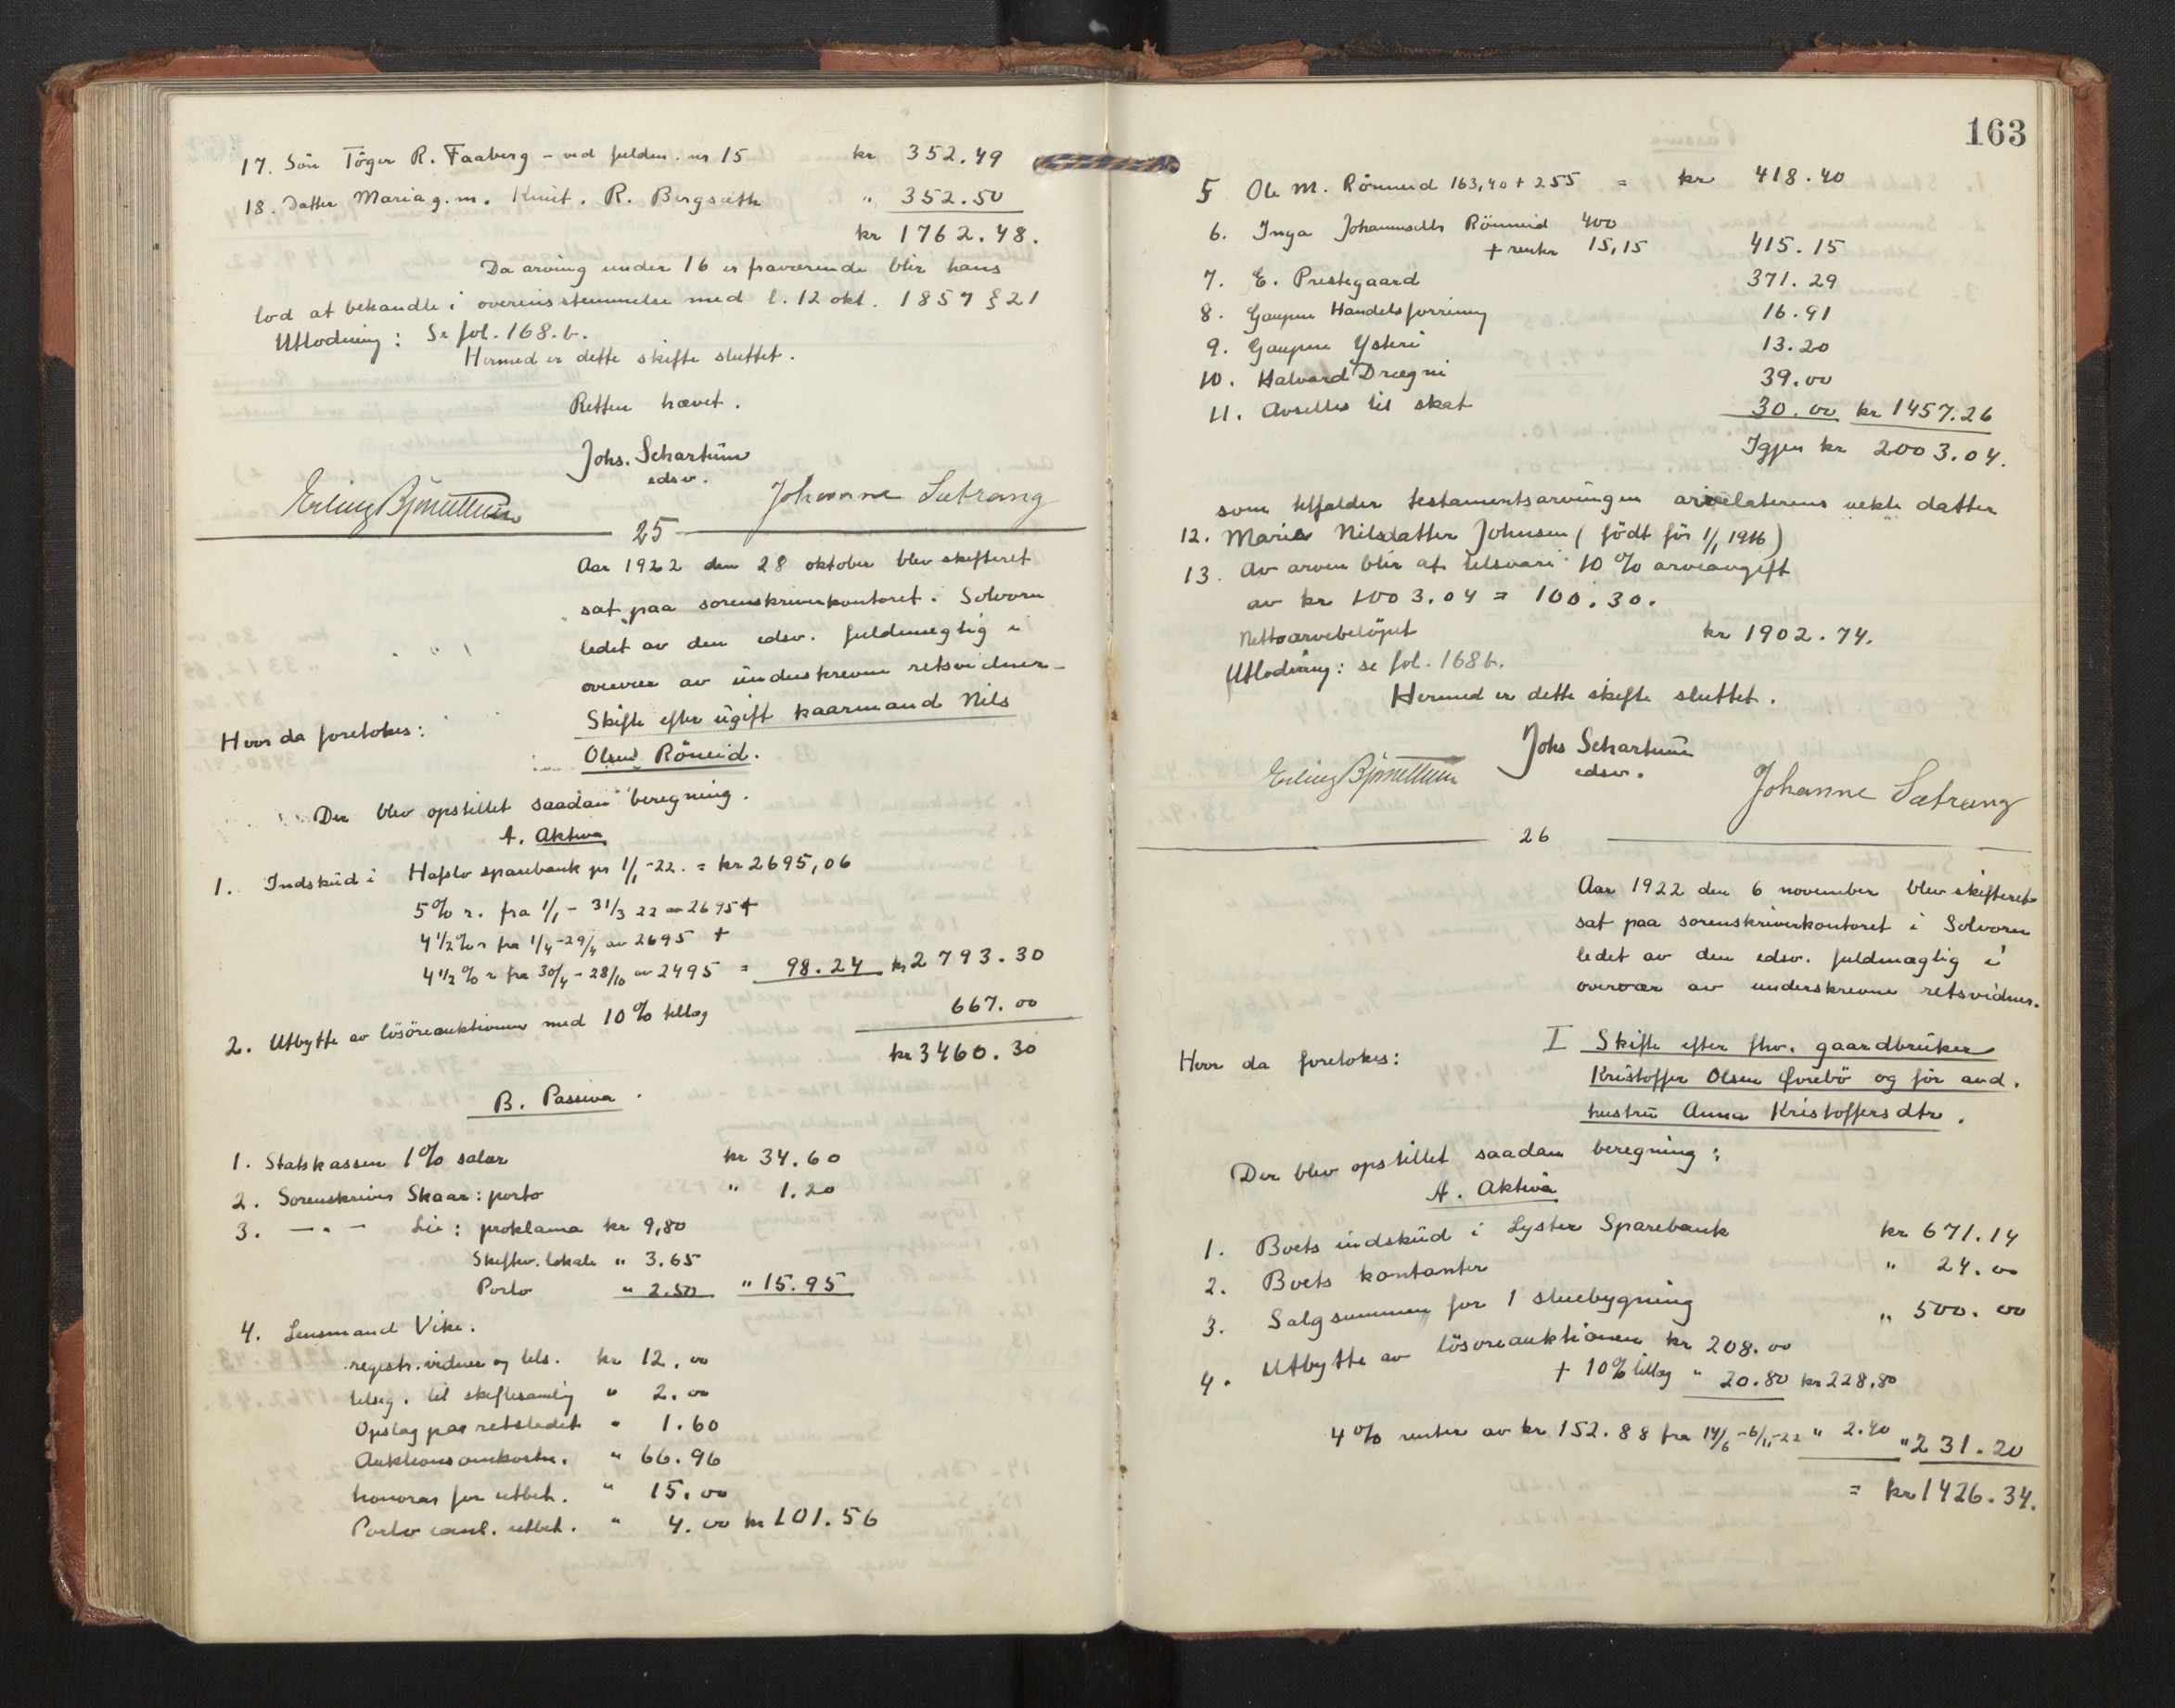 17. Sön Töger R. Faaberg - ved fuldm. nr 15 kr 352.49
18. Datter Maria g.m. Knut. R. Bergsæth " 352.50
kr 1762.48.
Da arving under 16 er fraværende blir hans
lod at behandle i overensstemmelse med l. 12 okt. 1857 § 21
Utlodning: Se fol. 168.b.
Hermed er dette skifte sluttet.
Retten hævet.
Johs. Schartum
edsv.
Johanne Sætrang
25
Aar 1922 den 28 oktober blev skifteret
sat paa sorenskriverkontoret i Solvorn
ledet av den edsv. fuldmægtig i
overvær av underskrevne retsvidner
Hvor da foretokes:
Skifte efter ugift kaarmand Nils
Olsen Röneid.
Der blev opstillet saadan beregning.
A. Aktiva
1. Indskud i Hafslo sparebank pr 1/1-22. = kr 2695,06
5% r. fra 1/1 - 31/3 22 av 2695 +
4 1/2% r fra 1/4-29/4 av 2695 +
4 1/2 % r fra 30/4 - 28/10 av 2495 = 98.24 kr 2793.30
2. Utbytte av lösöreauktionen med 10% tillæg 667.00
kr 3460.30
B. Passiva.
1. Statskassen 1% salær kr 34.60
2. Sorenskriver Skaar: porto " 1.20
3. -"- Lie: proklama kr 9,80
Skiftev. lokale " 3.65
Porto " 2.50 " 15.95
4. Lensmand Vike.
registr. vidner og tils. kr 12.00
tilsig. til skiftesamling " 2.00
Opslag paa retsledet " 1.60
Auktionsomkostn. " 66.96
honorar for utbet. " 15.00
Porto anl. utbet. " 4.00 kr 101.56
163
5 Ole M. Rönneid 163,40 + 255 = kr 418.40
6. Inga Johannesdtr Rönneid 400
+ renter 15,15 415.15
7. E. Prestegaard 371.29
8. Gaupne Handelsforening 16.91
9. Gaupne Ysteri 13.20
10. Halvard Drægni 39.00
11. Avsettes til skat 30.00 kr 1457.26
Igjen kr 2003.04.
som tilfalder testamentsarvingen arvelaterens uekte datter
12. Marie Nilsdatter Johnsen (födt för 1/1 1916)
13. Av arven blir at tilsvare 10% arveavgift
av kr 1003.04 = 100.30.
Nettoarvebelöpet kr 1902.74.
Utlodning: se fol. 168b.
Hermed er dette skifte sluttet.
Johs Schartum
edsv.
Johanne Sætrang
26
Aar 1922 den 6 november blev skifteret
sat paa sorenskriverkontoret i Solvorn
ledet av den edsv. fuldmægtig i
overvær av underskrevne retsvidner.
Hvor da foretokes:
I Skifte efter fhv. gaardbruker
Kristoffer Olsen Øvrebö og för avd.
hustru Anna Kristoffersdtr.
Der blev opstillet saadan beregning:
A. Aktiva
1. Boets indskud i Lyster Sparebank kr 671.14
2. Boets kontanter " 24.00
3. Salgsummen for 1 stuebygning " 500.00
4. Utbytte av lösöreauktionen kr 208.00
+ 10% tillæg " 20.80 kr 228.80
4% renter av kr 152.88 fra 14/6-6/11-22 " 2.40 " 231.20
= kr 1426.34.